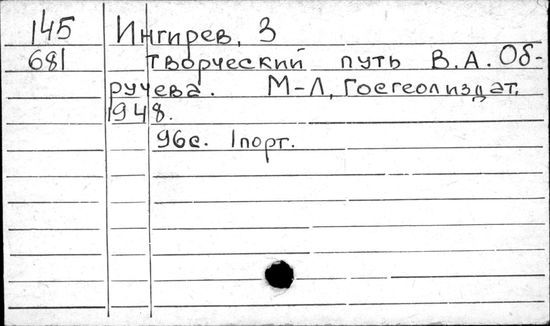 145 Ингирев, З
681 творческий путь В.А. Об-
ручева. М-Л, Госгеолиздат,
1948.
96с. 1 порт.